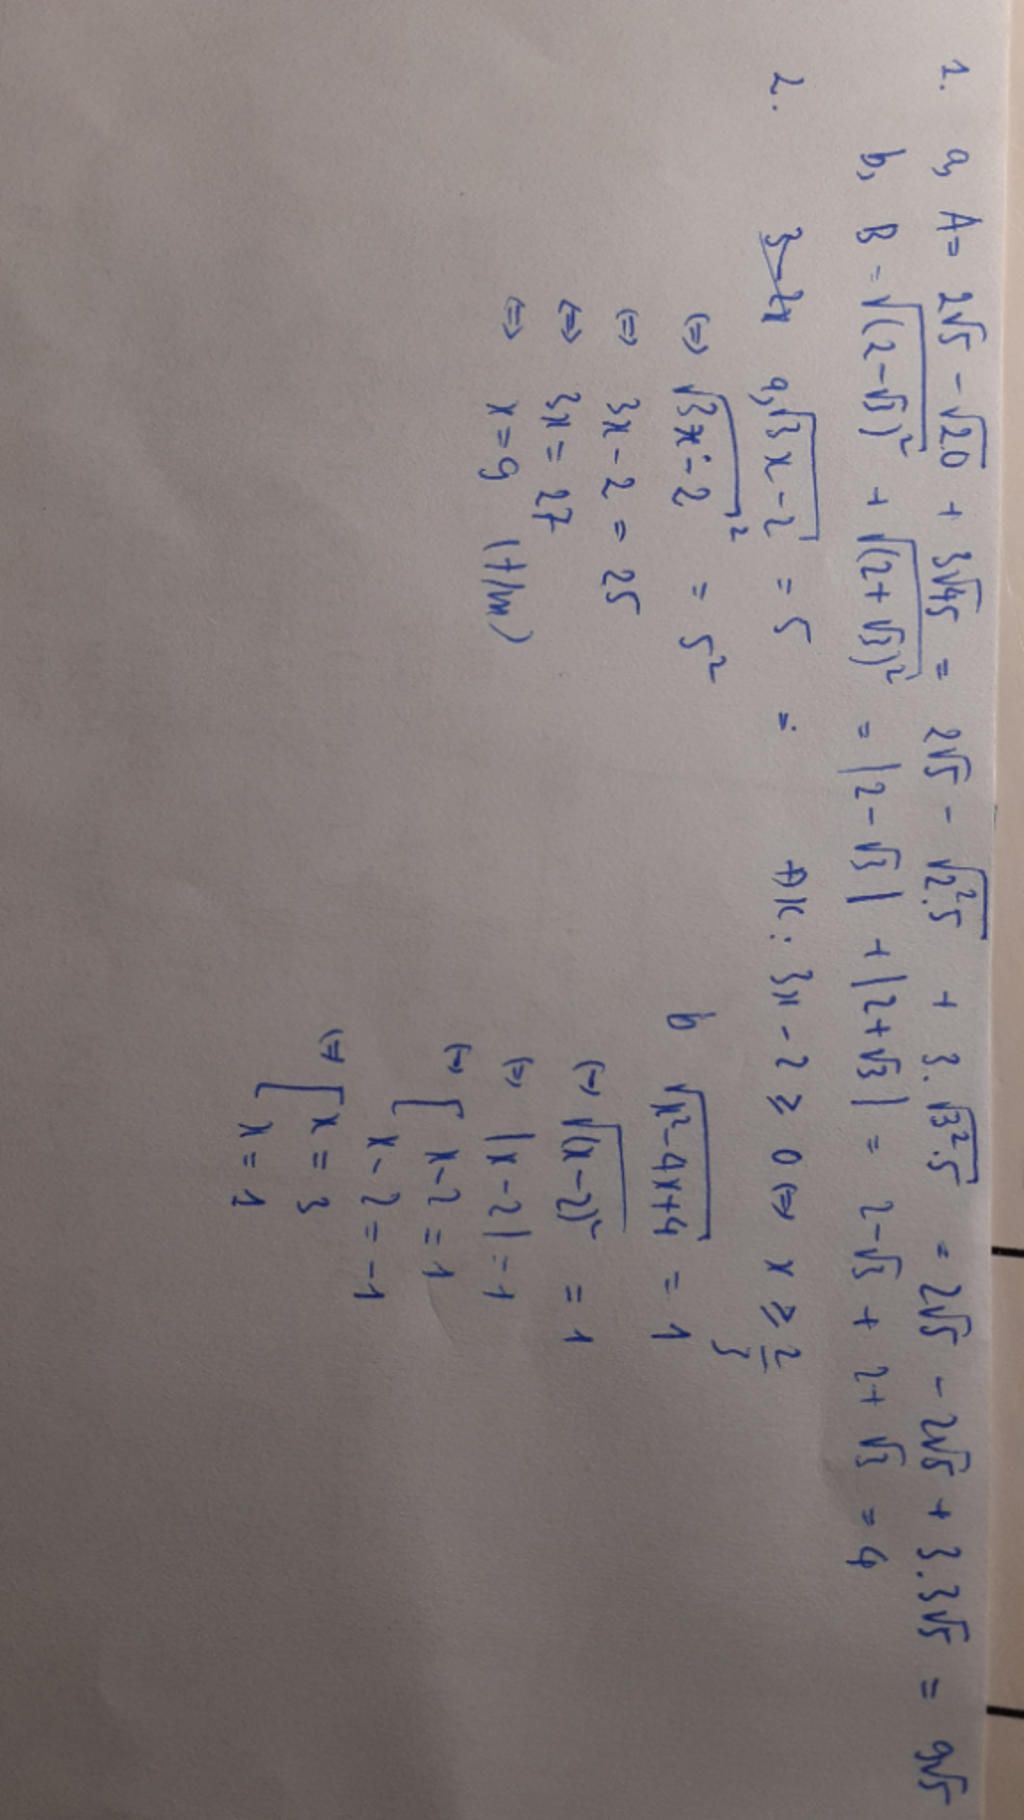 1. a, A = 2√5 - √20 + 3√45 = 2√5 - √2².5 + 3.√3².5 = 2√5 - 2√5 + 3.3√5 = 9√5
b, B = √(2-√3)² + √(2+√3)² = |2-√3| + |2+√3| = 2-√3 + 2+√3 = 4
2. a, √3x-2 = 5 = ĐK: 3x - 2 ≥ 0 ⇔ x ≥ 2/3
⇔ √3x-2² = 5²
⇔ 3x - 2 = 25
⇔ 3x = 27
⇔ x = 9 (t/m)
b √x²-4x+4 = 1
⇔ √(x-2)² = 1
⇔ |x-2| = 1
⇔ [ x-2 = 1
x-2 = -1
⇔ [ x = 3
x = 1